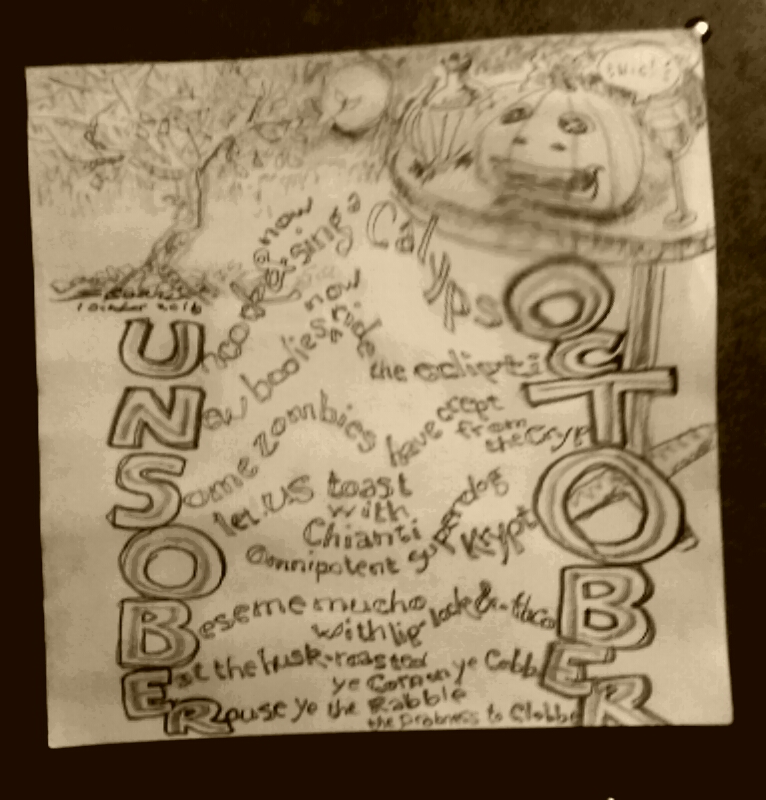 1 October 2016
now
& sing a CalypsO
New bodies now ride
the eclipticC
Some zombies have crept
from
the CrypT
let us toast
with
Chianti
Omnipotent superdog KryptO
Beseme mucho
with lip lock &
Eat the husk-roasted
ye Corn on ye CobbE
Rouse ye the Rabble
the to ClobbeR